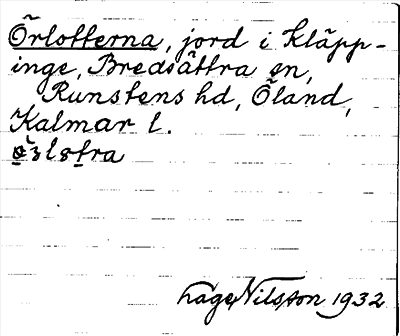 Örlotterna, jord i Kläpp-
inge, Bredsättra sn,
Runstens hd, Öland,
Kalmar l.
Lage Nilsson 1932